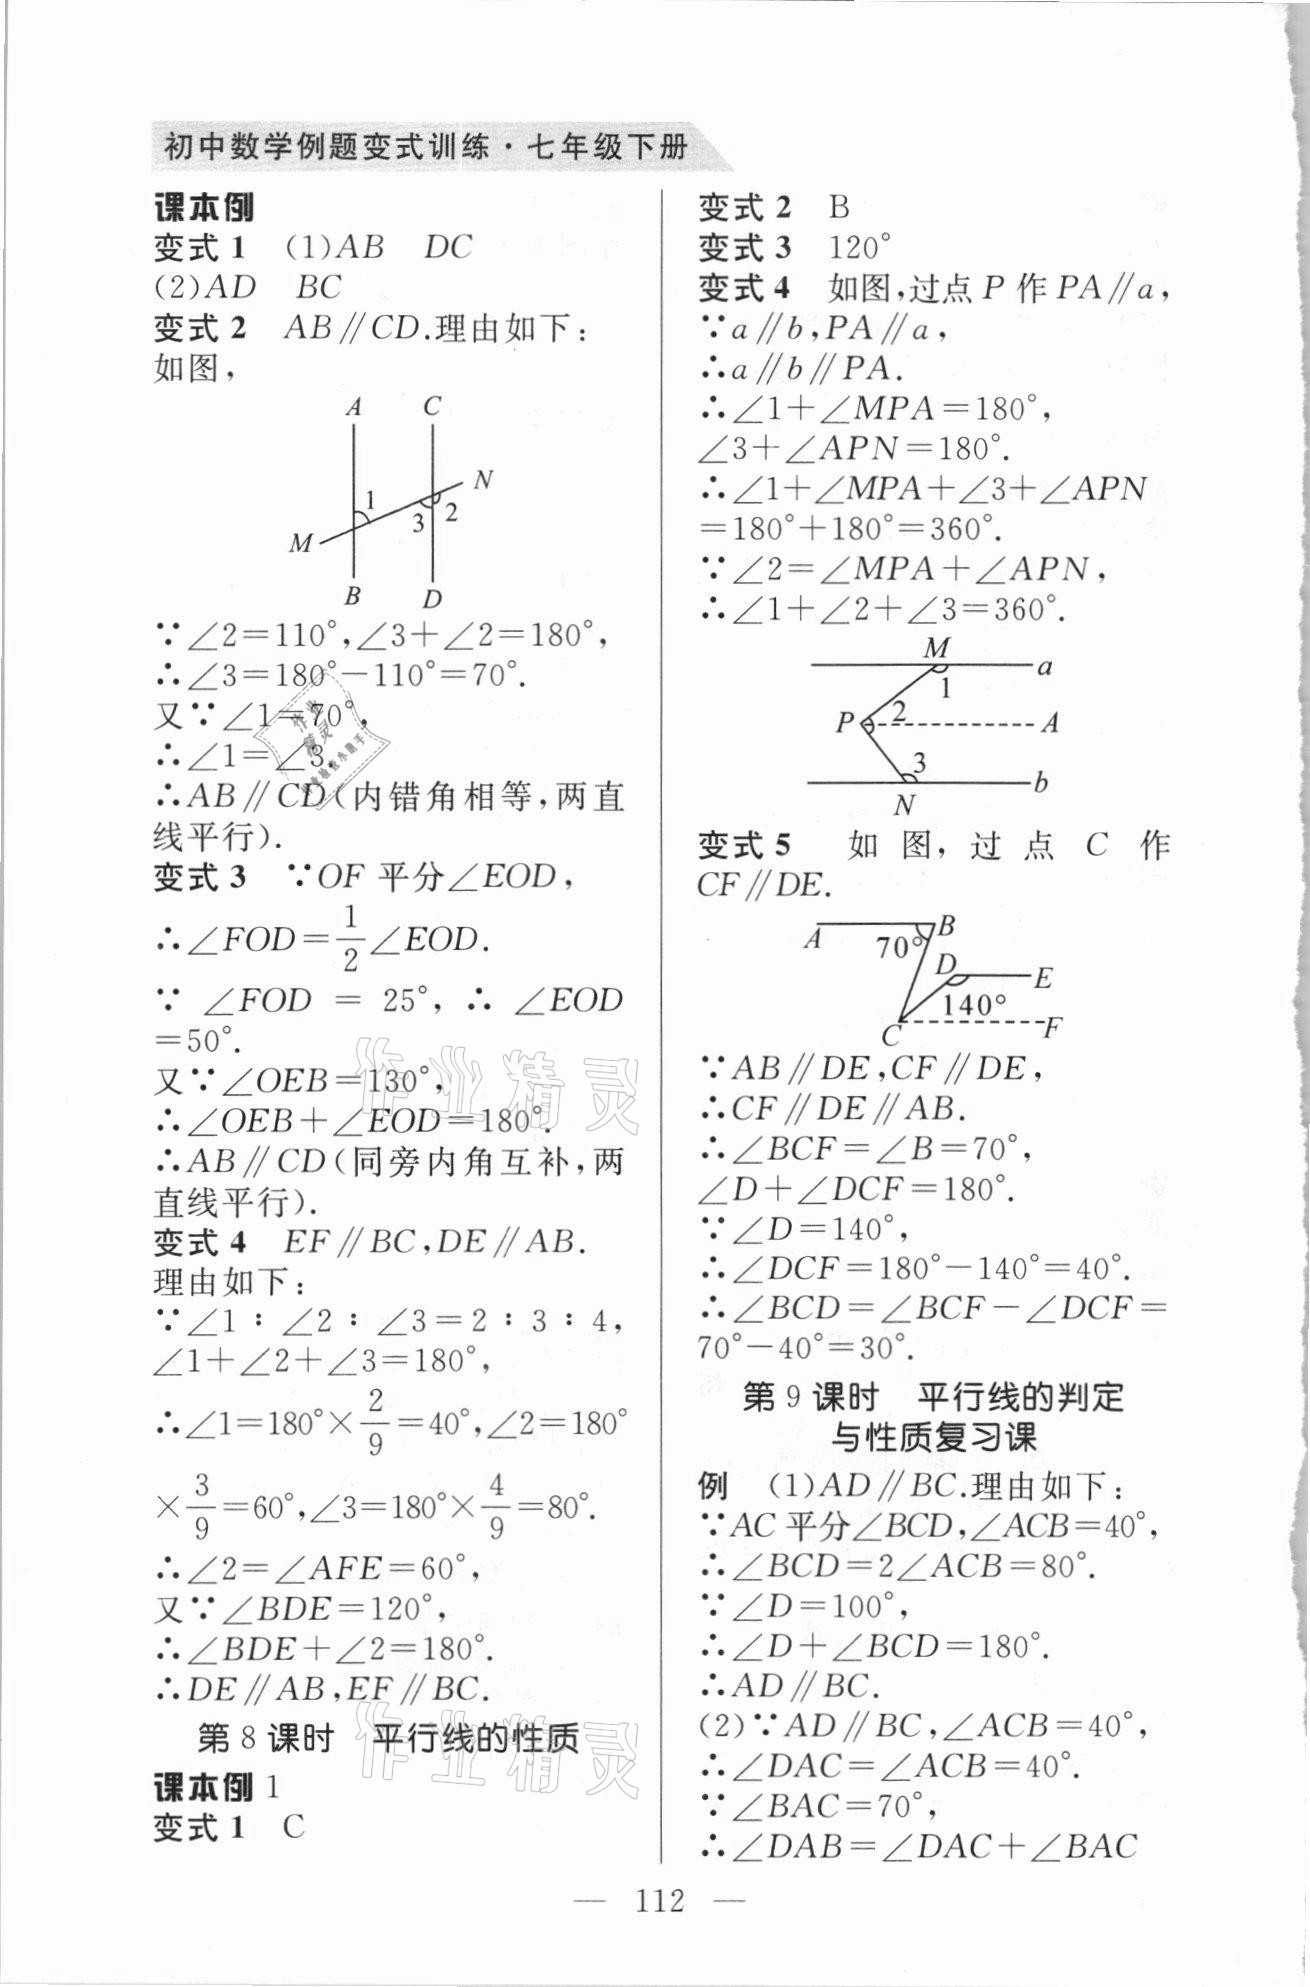 初中数学例题变式训练·七年级下册
课本例
变式1 (1)AB DC
(2)AD BC
变式2 AB∥CD.理由如下:
如图,
A C
N
1
3 2
M
B D
∵∠2=110°,∠3+∠2=180°,
∴∠3=180°-110°=70°.
又∵∠1=70°,
∴∠1=∠3.
∴AB∥CD(内错角相等,两直
线平行).
变式3 ∵OF平分∠EOD,
∴∠FOD=1/2∠EOD.
∵ ∠FOD = 25°, ∴ ∠EOD
=50°.
又∵∠OEB=130°,
∴∠OEB+∠EOD=180°.
∴AB∥CD(同旁内角互补,两
直线平行).
变式4 EF∥BC,DE∥AB.
理由如下:
∵∠1∶∠2∶∠3=2∶3∶4,
∠1+∠2+∠3=180°,
∴∠1=180°×2/9=40°,∠2=180°
×3/9=60°,∠3=180°×4/9=80°.
∴∠2=∠AFE=60°,
又∵∠BDE=120°,
∴∠BDE+∠2=180°.
∴DE∥AB,EF∥BC.
第8课时 平行线的性质
课本例1
变式1 C
变式2 B
变式3 120°
变式4 如图,过点P作PA∥a,
∵a∥b,PA∥a,
∴a∥b∥PA.
∴∠1+∠MPA=180°,
∠3+∠APN=180°.
∴∠1+∠MPA+∠3+∠APN
=180°+180°=360°.
∵∠2=∠MPA+∠APN,
∴∠1+∠2+∠3=360°.
M
a
1
P 2 A
3
b
N
变式5 如图,过点C作
CF∥DE.
A B
70°
D E
140°
C F
∵AB∥DE,CF∥DE,
∴CF∥DE∥AB.
∴∠BCF=∠B=70°,
∠D+∠DCF=180°.
∵∠D=140°,
∴∠DCF=180°-140°=40°.
∴∠BCD=∠BCF-∠DCF=
70°-40°=30°.
第9课时 平行线的判定
与性质复习课
例 (1)AD∥BC.理由如下:
∵AC平分∠BCD,∠ACB=40°,
∴∠BCD=2∠ACB=80°.
∵∠D=100°,
∴∠D+∠BCD=180°.
∴AD∥BC.
(2)∵AD∥BC,∠ACB=40°,
∴∠DAC=∠ACB=40°.
∵∠BAC=70°,
∴∠DAB=∠DAC+∠BAC
— 112 —
作业精灵
作业精灵
作业
精灵